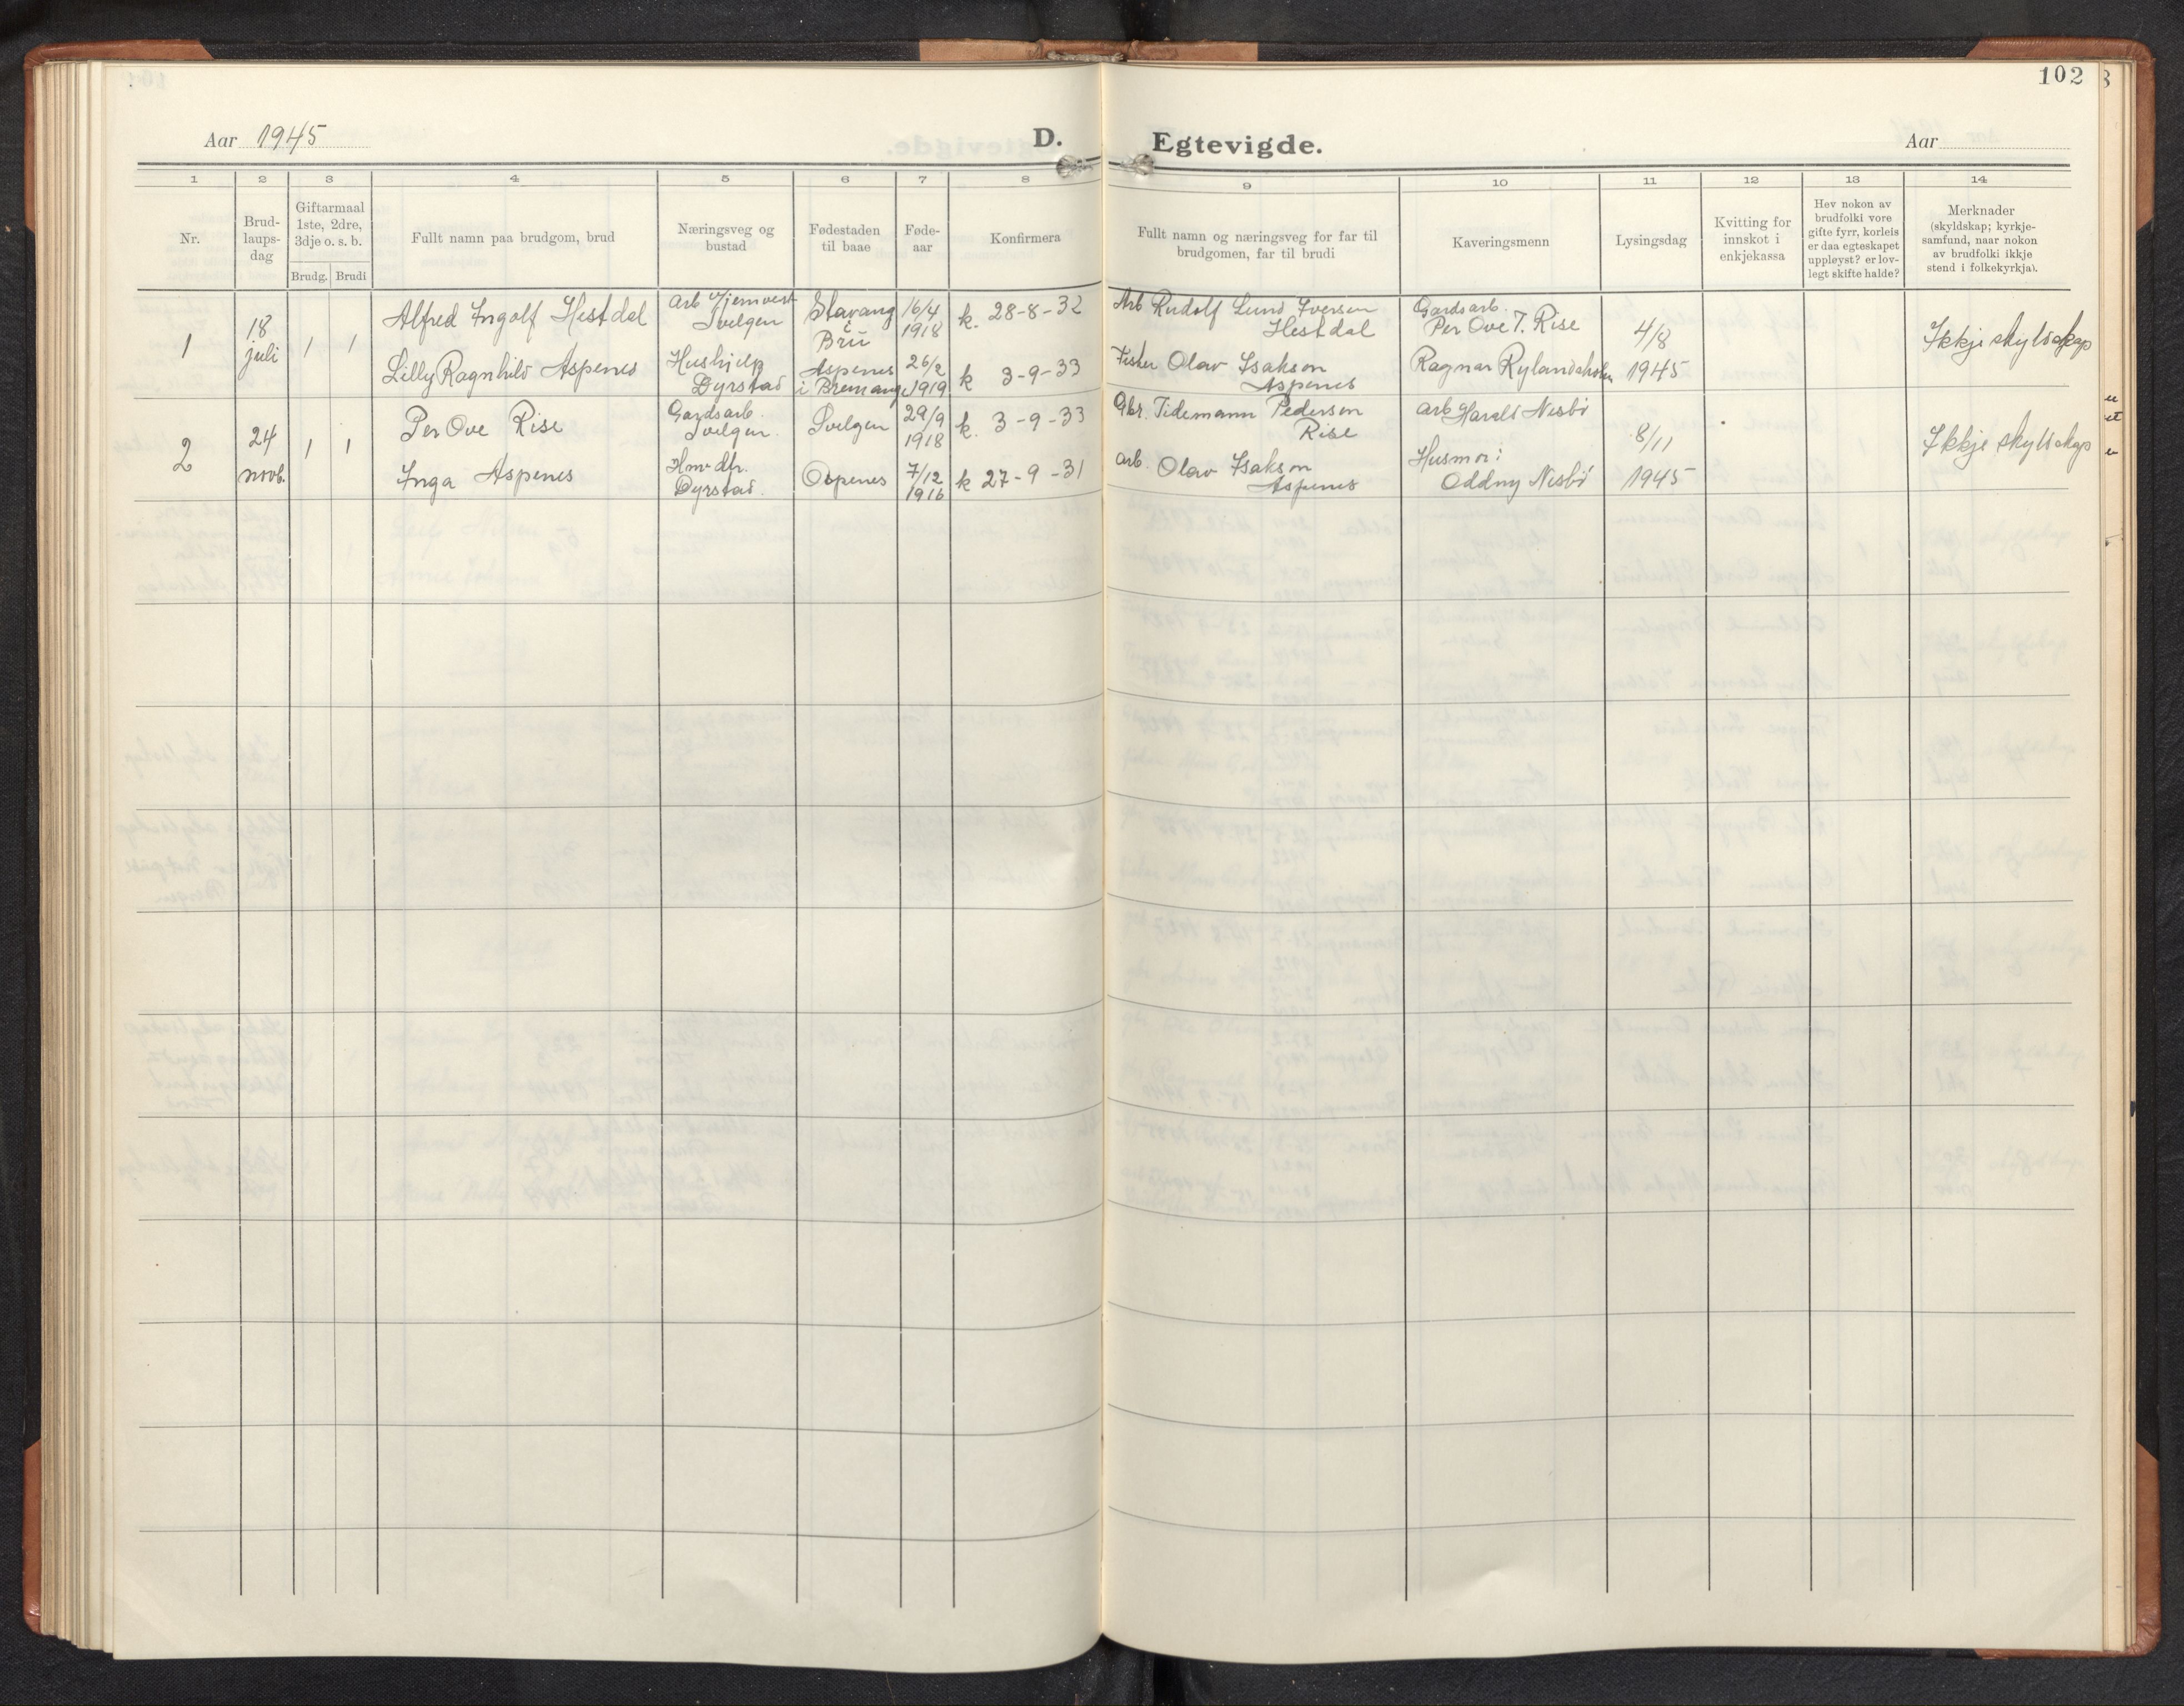 102
Aar 1945
D. Egtevigde.
Aar
1 2 3 4 5 6 7 8 9 10 11 12 13 14
Nr.
Brud-
laups-
dag
Giftarmaal
1ste, 2dre,
3dje o. s. b.
Brudg. Brudi
Fullt namn paa brudgom, brud
Næringsveg og
bustad
Fødestaden
til baae
Føde-
aar
Konfirmera
Fullt namn og næringsveg for far til
brudgomen, far til brudi
Kaveringsmenn
Lysingsdag
Kvitting for
innskot i
enkjekassa
Hev nokon av
brudfolki vore
gifte fyrr, korleis
er daa egteskapet
uppløyst? er lov-
legt skifte halde?
Merknader
(skyldskap; kyrkje-
samfund, naar nokon
av brudfolki ikkje
stend i folkekyrkja).
1
18
juli
1 1
Alfred Ingolf Hestdal
Arb
Svelgen
Stavang
i
Brü
16/4
1918
k. 28-8-32
Arb Rudolf Lund Iversen
Hestdal
Gardsarb.
Per Ove T. Rise
4/8
1945
Ikkje skyldskap
Lilly Ragnhild Aspenes
Hushjelp
Dyrstad
Aspenes
i Bremang
26/2
1919
k 3-9-33
Fisker Olav Isakson
Aspenes
Ragnar Rylandsholm
2
24
novb.
1 1
Per Ove Rise
Gardsarb.
Svelgen
Svelgen
29/9
1918
k. 3-9-33
Gbr. Tidemann Pedersen
Rise
Arb Harald Nesbö
8/11
1945
Ikkje skyldskap
Inga Aspenes
Hmv dtr.
Dyrstad.
Aspenes
7/12
1916
k 27-9-31
Arb. Olav Isakson
Aspenes
Husmor:
Oddny Nesbö